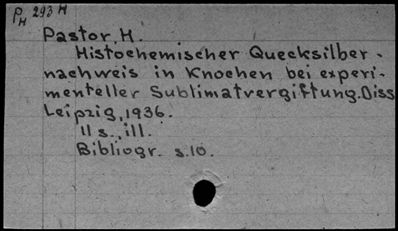 P H 293 H
Pastor, H.
Histochemischer Quecksilber-
nachweis in Knochen bei experi-
menteller Sublimatvergiftung. Diss
Leipzig, 1936.
11 s., ill.
Bibliogr. s. 10.